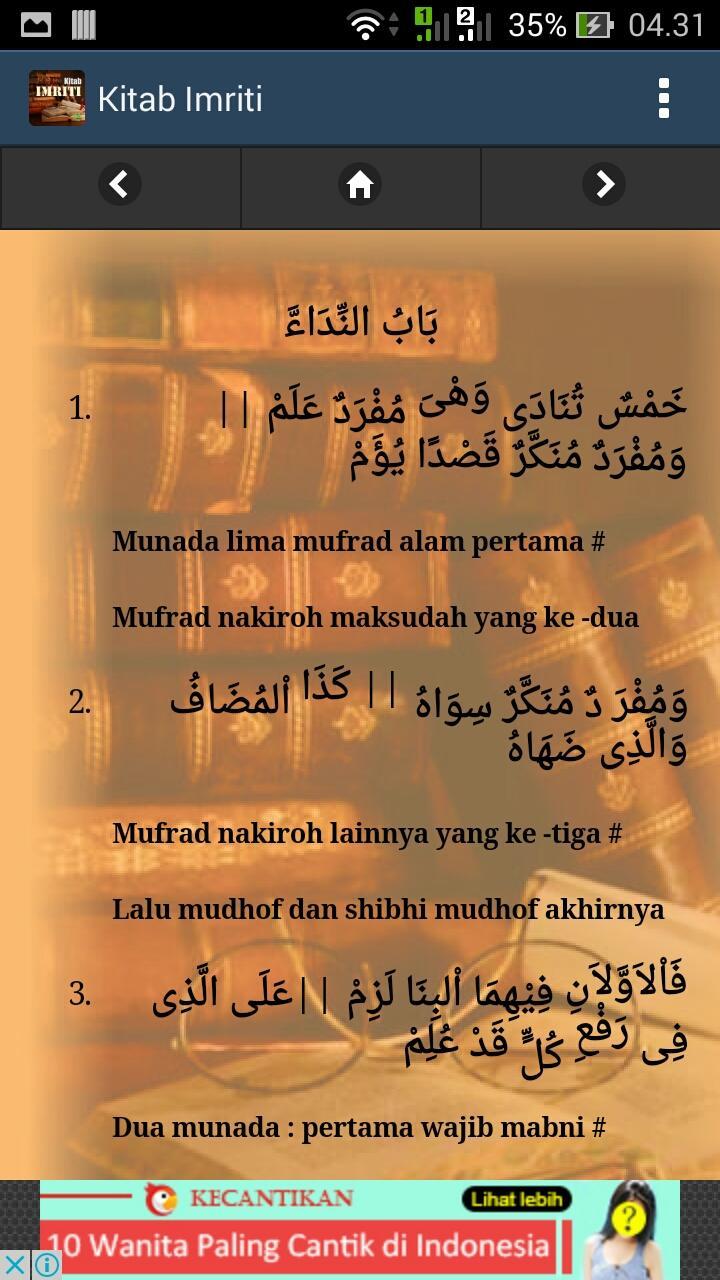 35% 04.31
Kitab IMRITI Kitab Imriti
بَابُ النِّدَاءَّ
1. خَمْسٌ تُنَادَى وَهْىَ مُفْرَدٌ عَلَمْ ||
وَمُفْرَدٌ مُنَكَّرٌ قَصْدًا يُؤَمْ
Munada lima mufrad alam pertama #
Mufrad nakiroh maksudah yang ke -dua
2. وَمُفْرَ دٌ مُنَكَّرٌ سِوَاهُ || كَذَا اْلمُضَافُ
وَالَّذِى ضَهَاهُ
Mufrad nakiroh lainnya yang ke -tiga #
Lalu mudhof dan shibhi mudhof akhirnya
3. فَاْلاَوَّلاَنِ فِيْهِمَا اْلبِنَا لَزِمْ ||عَلَى الَّذِى
فِى رَفْعِ كُلٍّ قَدْ عُلِمْ
Dua munada : pertama wajib mabni #
KECANTIKAN Lihat lebih
10 Wanita Paling Cantik di Indonesia
?